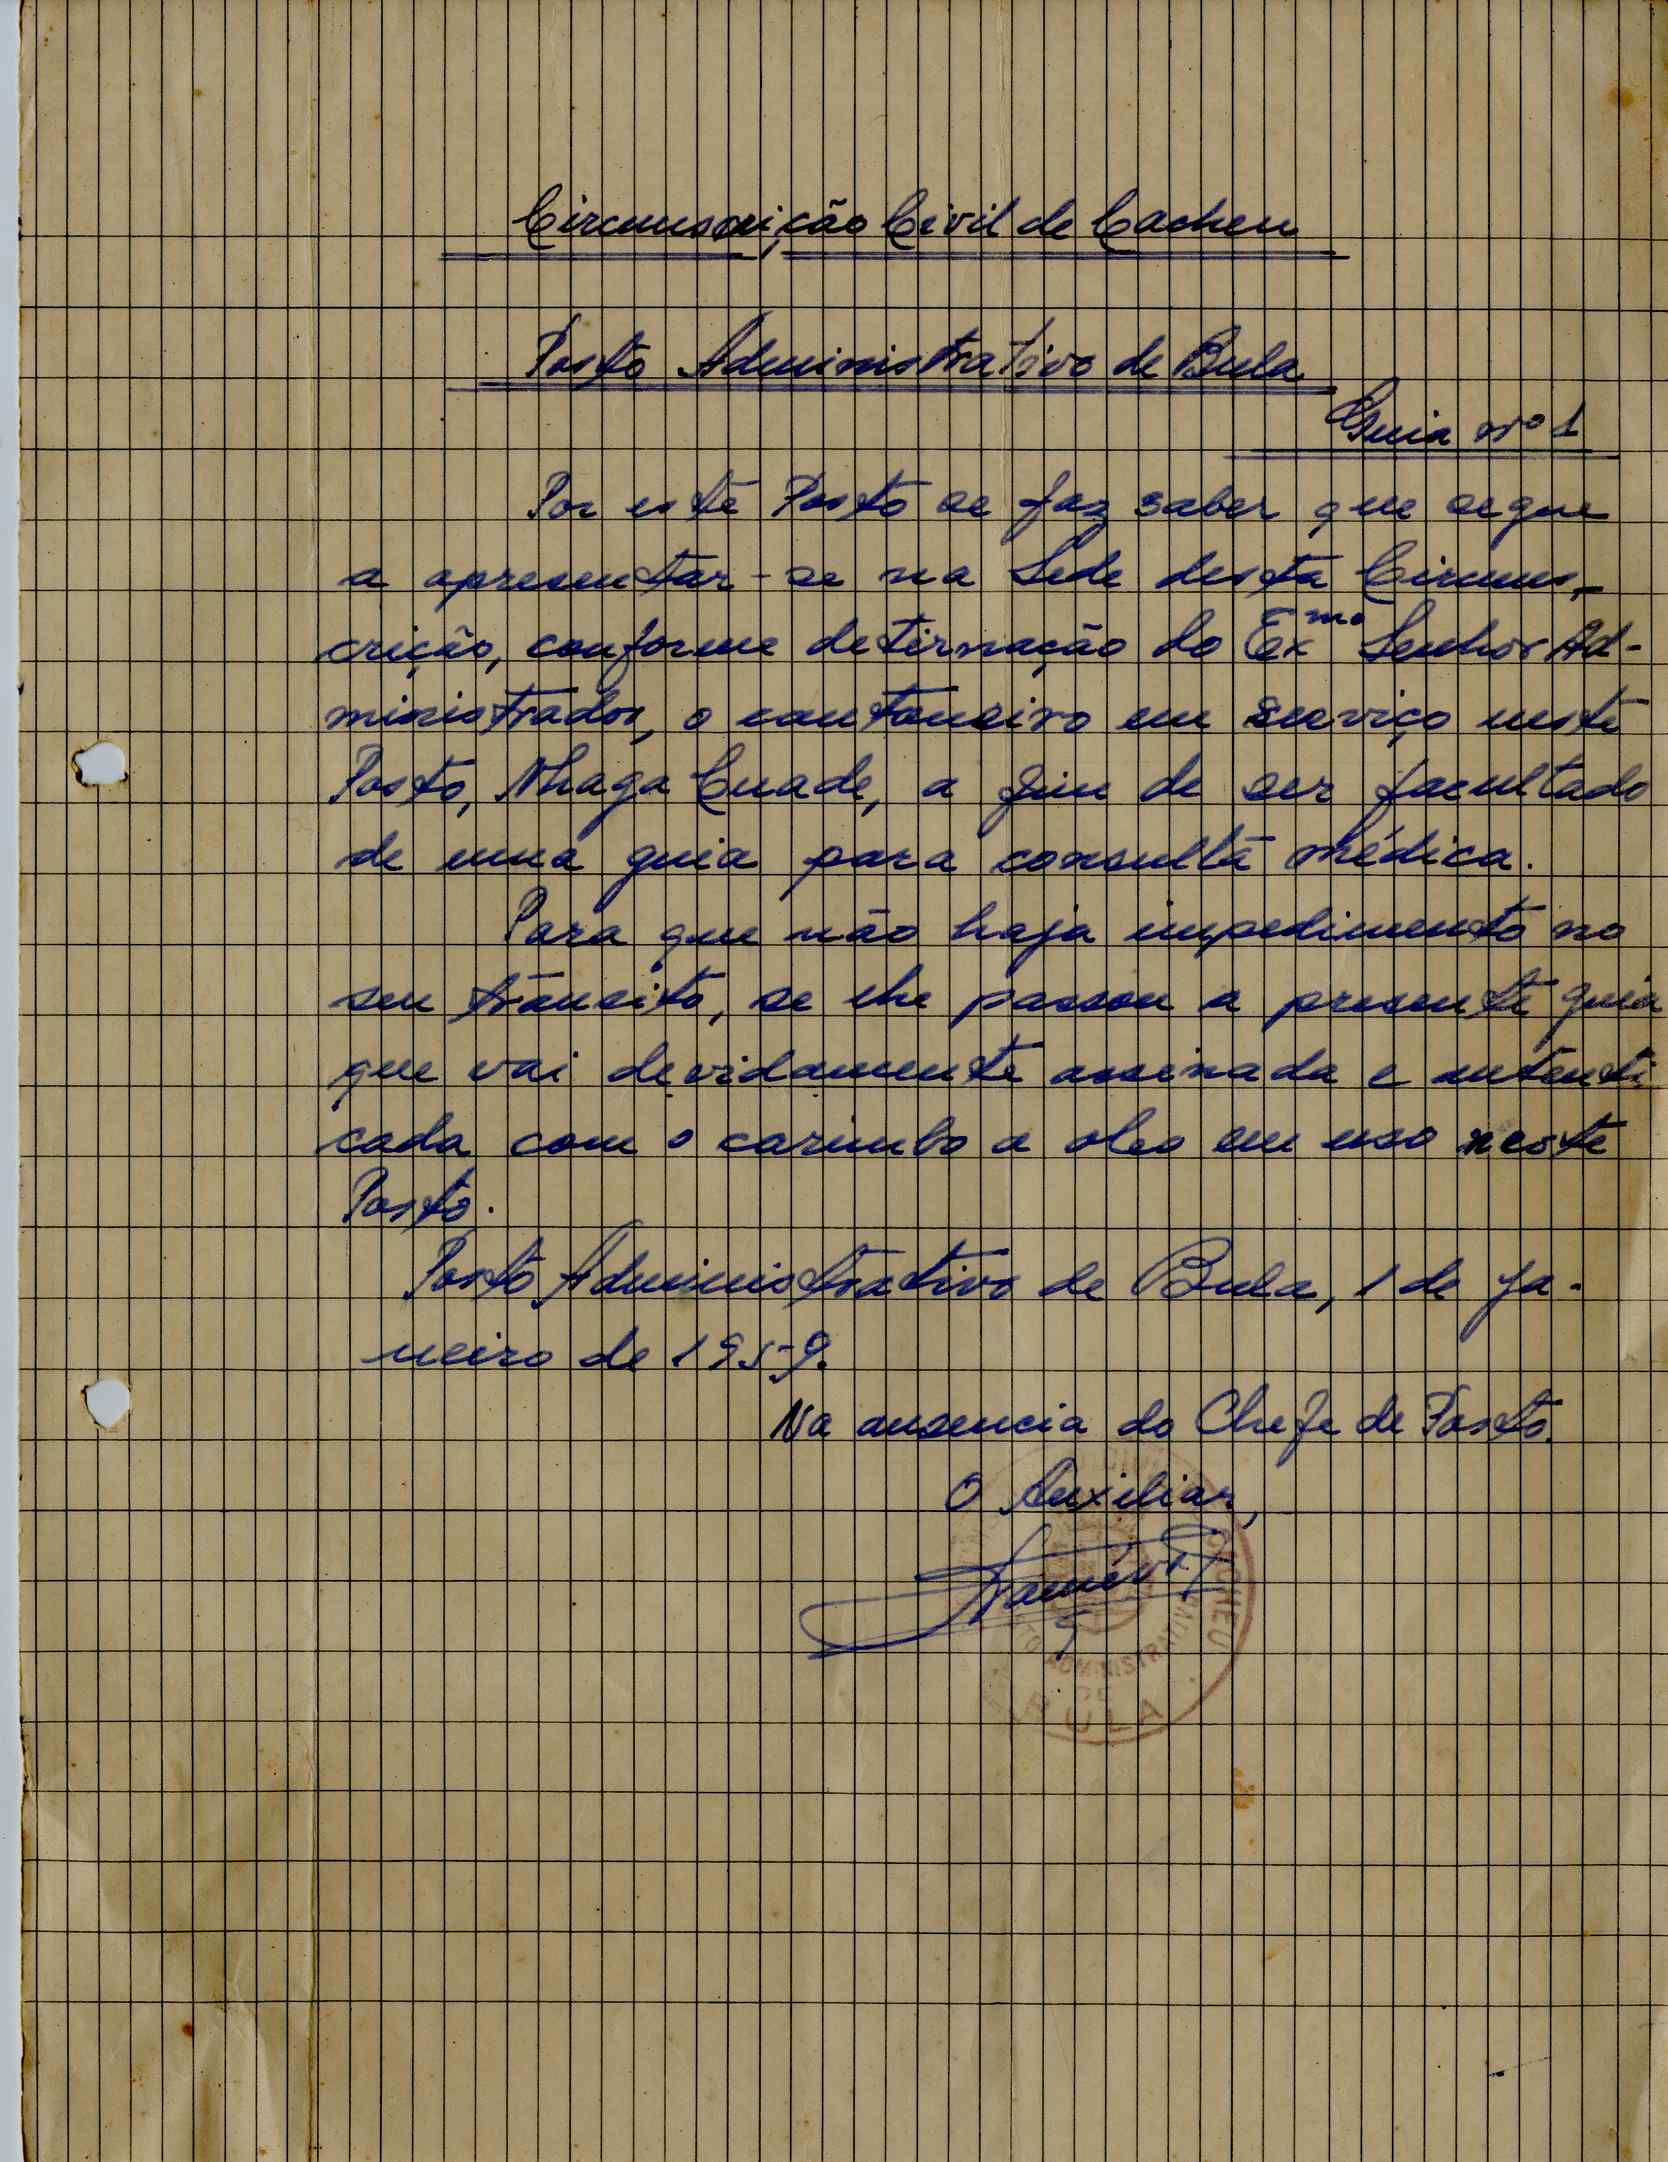 Circunscrição Civil de Cacheu
Posto Administrativo de Bula
Guia nº 1
Por este Posto se faz saber que segue
a apresentar-se na Sede desta Circuns-
crição, conforme detirnação do Exmo Senhor Ad-
ministrador, o cantoneiro em serviço neste
Posto, Nhaga Cuade, a fim de ser facultado
de uma guia para consulta médica.
Para que não haja impedimento no
seu trânsito, se lhe passou a presente guia
que vai devidamente assinada e autenti
cada com o carimbo a oleo em uso neste
Posto.
Posto Administrativo de Bula, 1 de Ja-
neiro de 1959.
Na ausencia do Chefe de Posto.
O Auxiliar,
CACHEU
POSTO ADMINISTRATIVO
DE
BULA